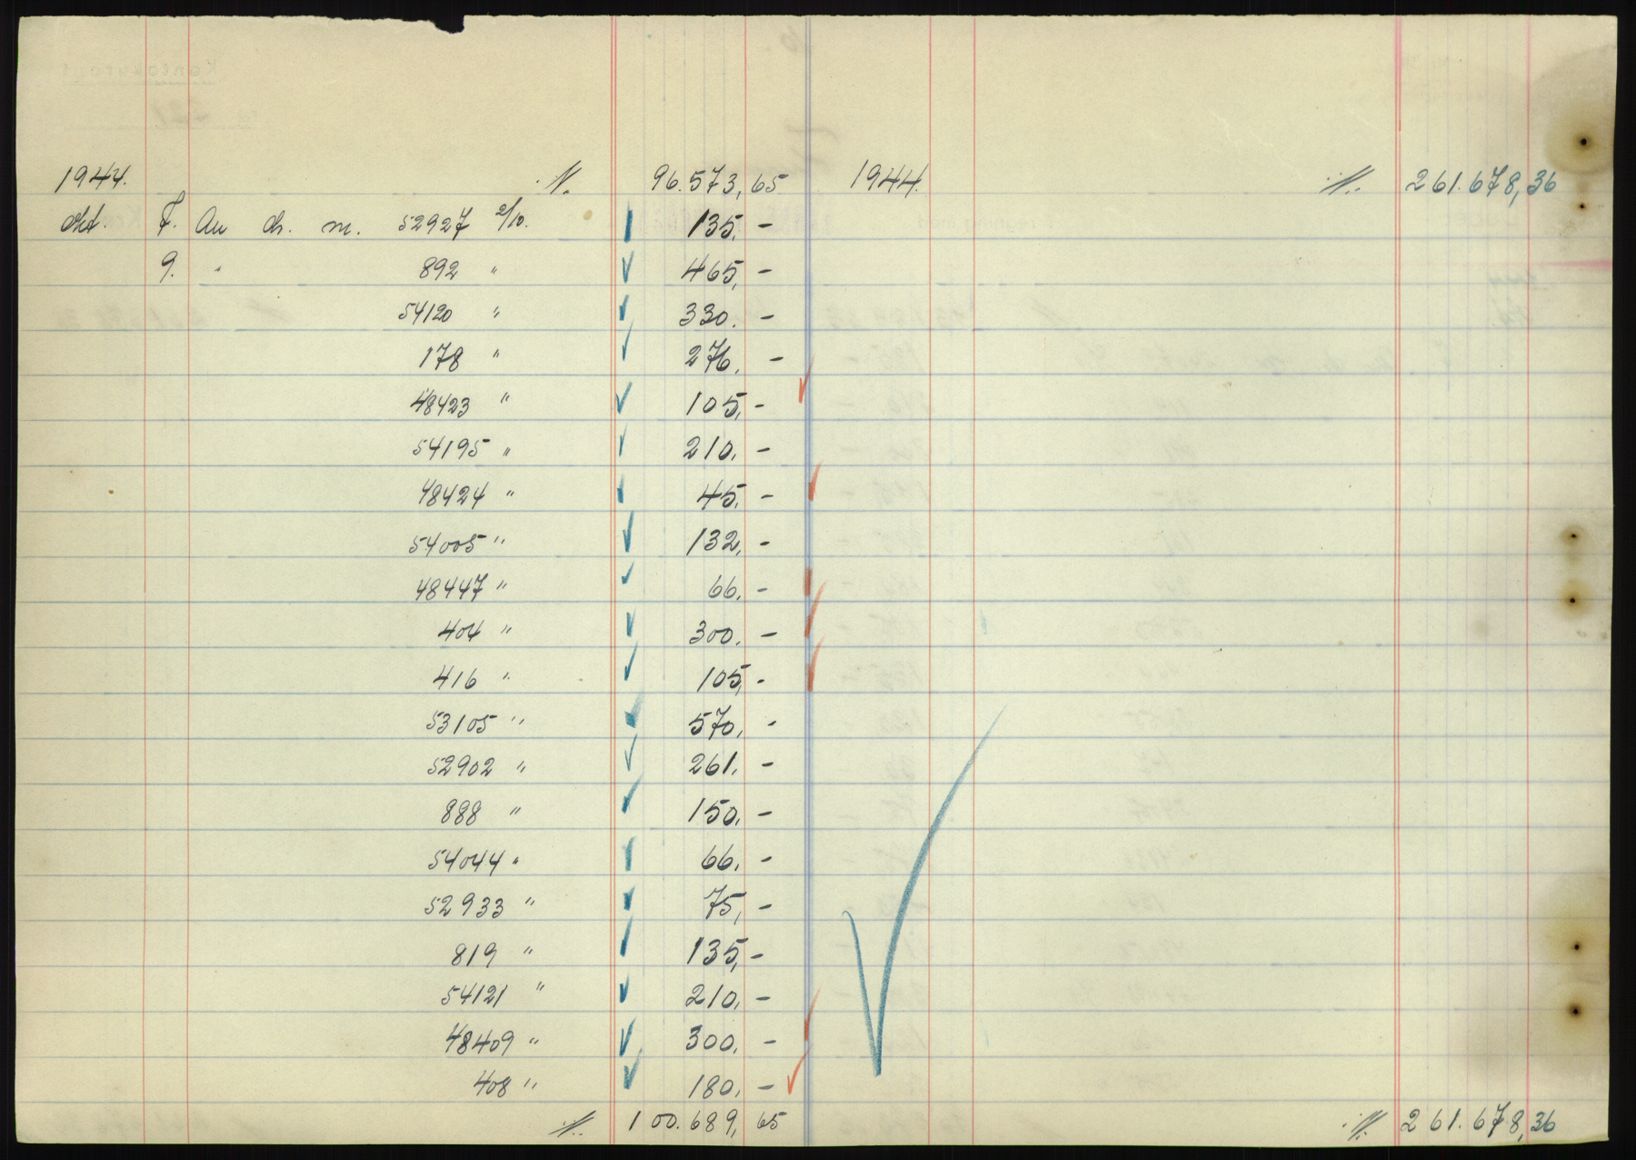 1944. 96.573,65 1944. 261.678,36
okt. 7. An ch. m. 52927 2/10. 135,-
9. " 892 " 465,-
54120 " 330.-
178 " 276.-
48423 " 105,-
54195 " 210.-
48424 " 45.-
54005 " 132.-
48447 " 66.-
404 " 300.-
416 " 105,-
53105 " 570.-
52902 " 261.-
888 " 150.-
54044 " 66.-
52933 " 75,-
819 " 135,-
54121 " 210.-
48409 " 300.-
408 " 180.-
100.689,65 261.678,36